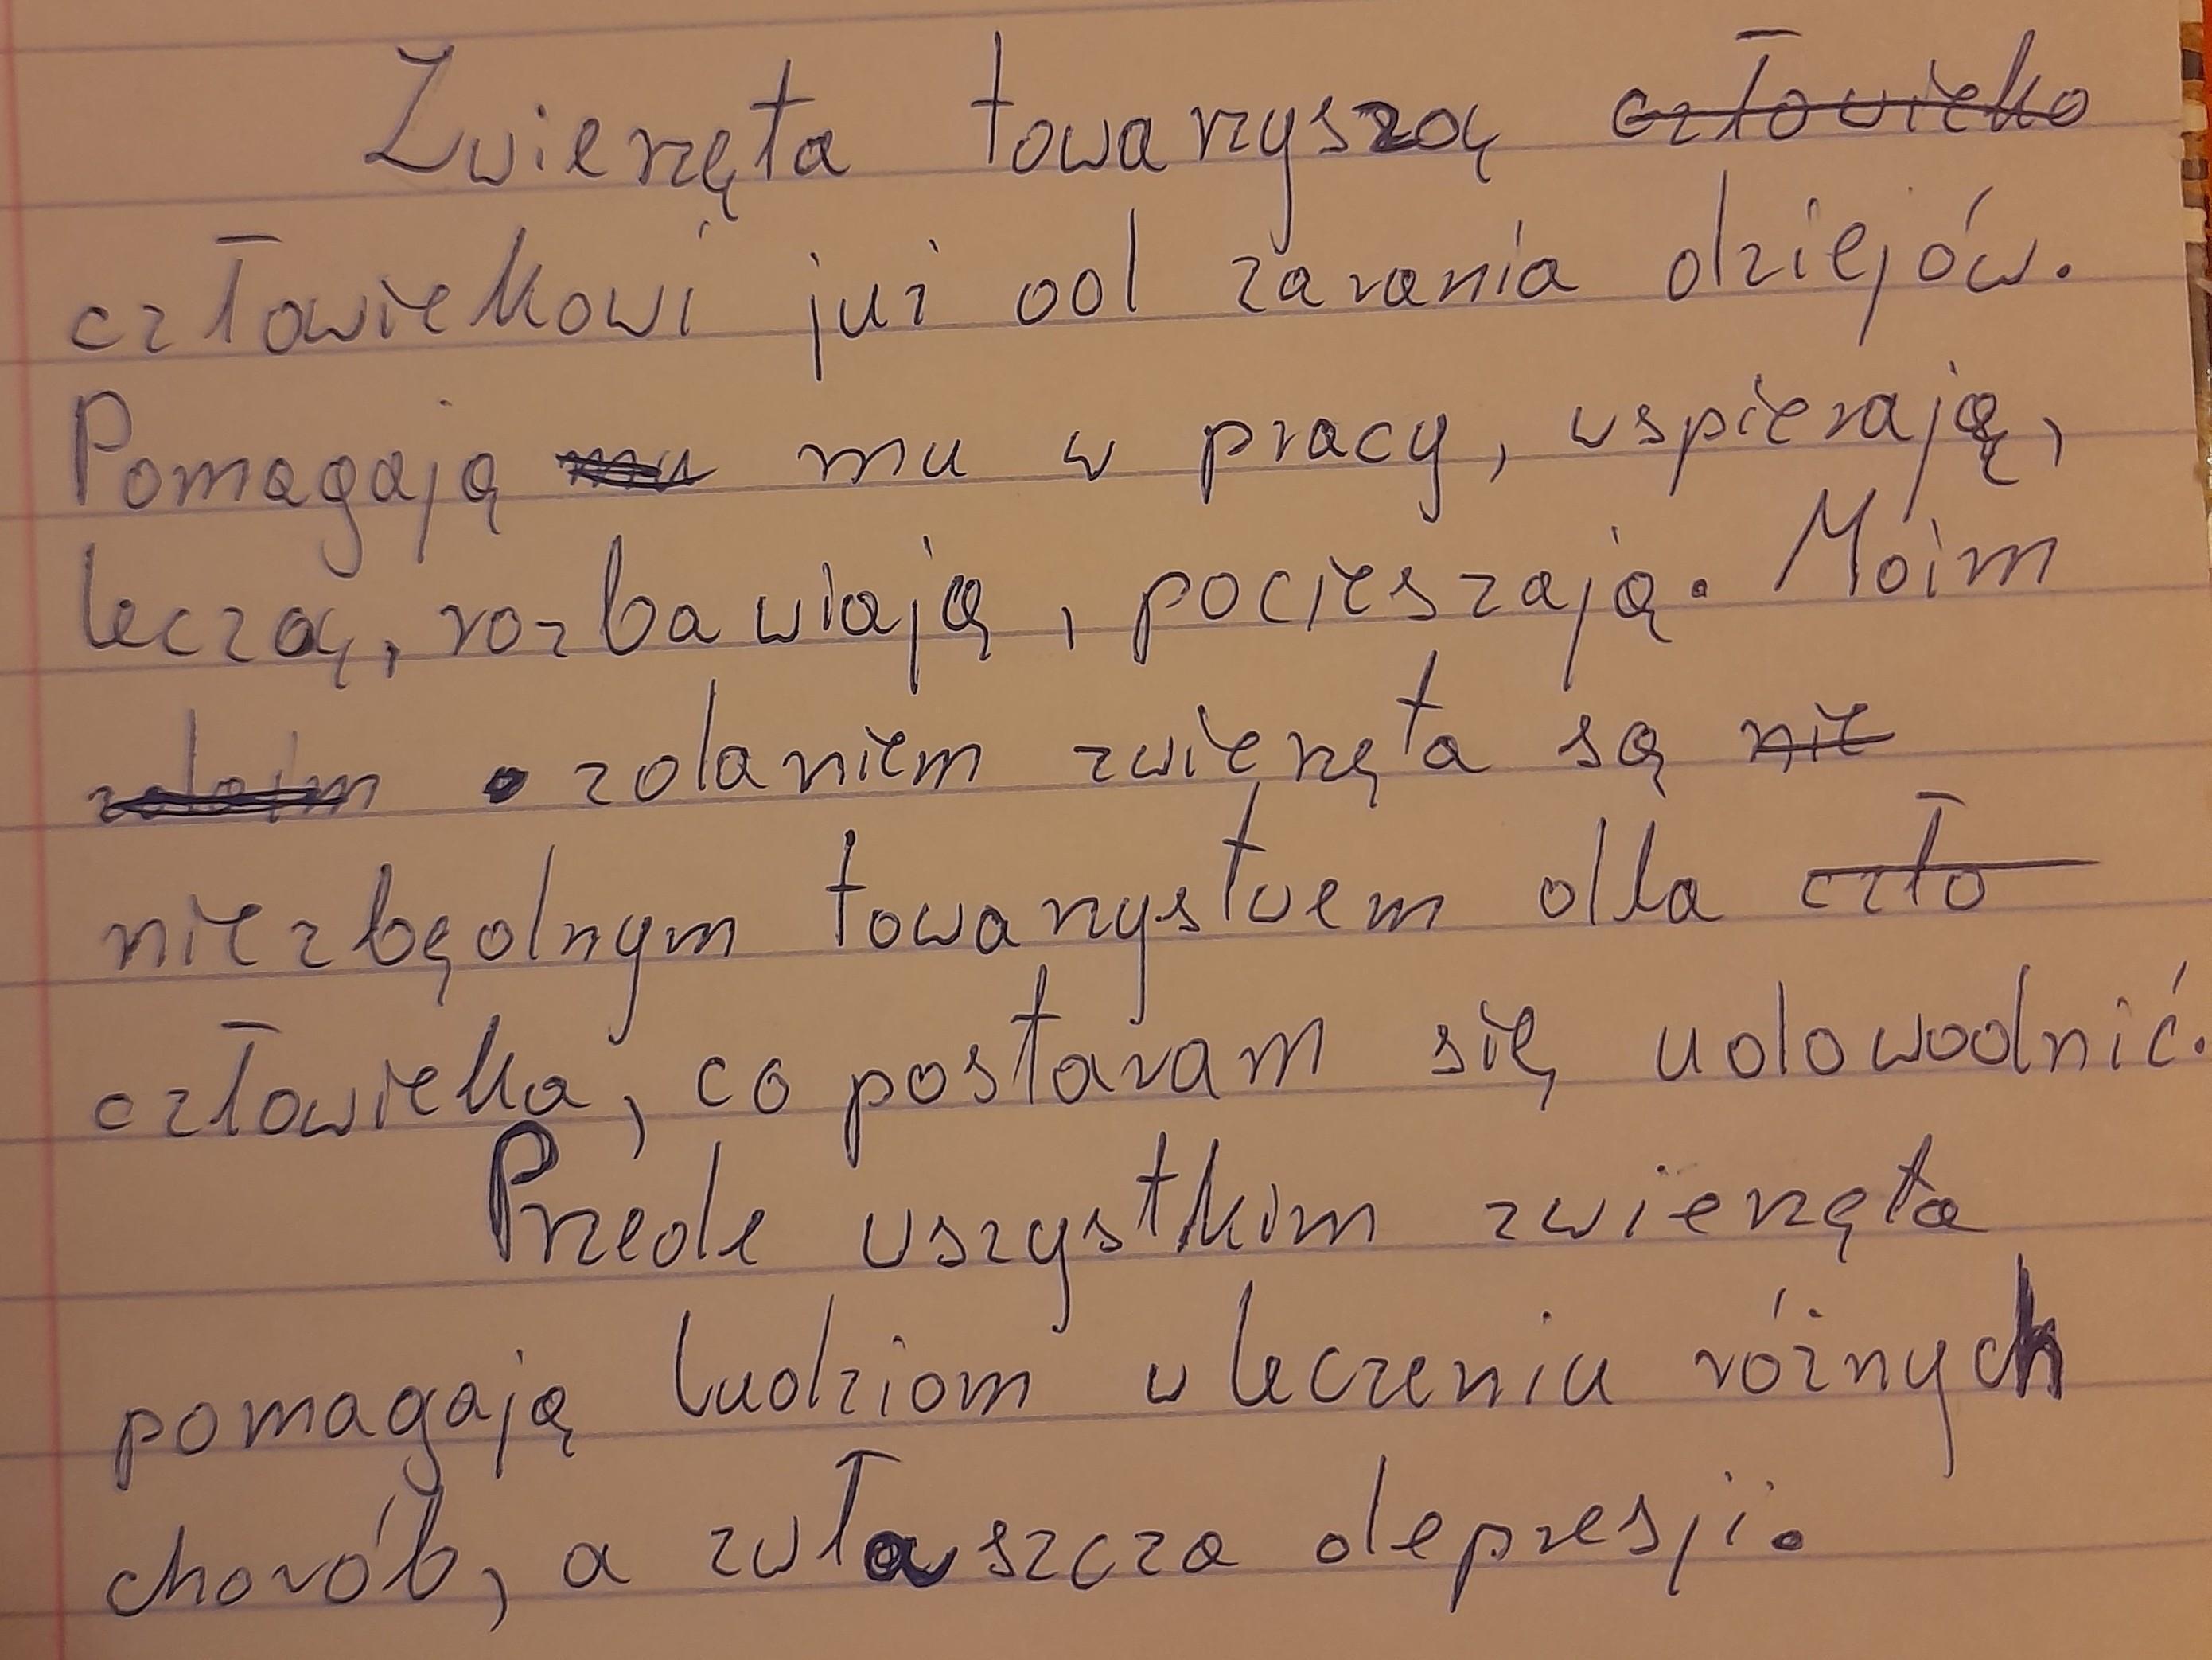 Zwierzęta towarzyszą człowieko
człowiekowi już od zarania dziejów.
Pomagają mu mu w pracy, wspierają,
leczą, rozbawiają, pocieszają. Moim
zdaniem zwierzęta są nie
niezbędnym towarzystwem dla czło
człowieka, co postaram się udowodnić.
Przede wszystkim zwierzęta
pomagają ludziom w leczeniu różnych
chorób, a zwłaszcza depresji.